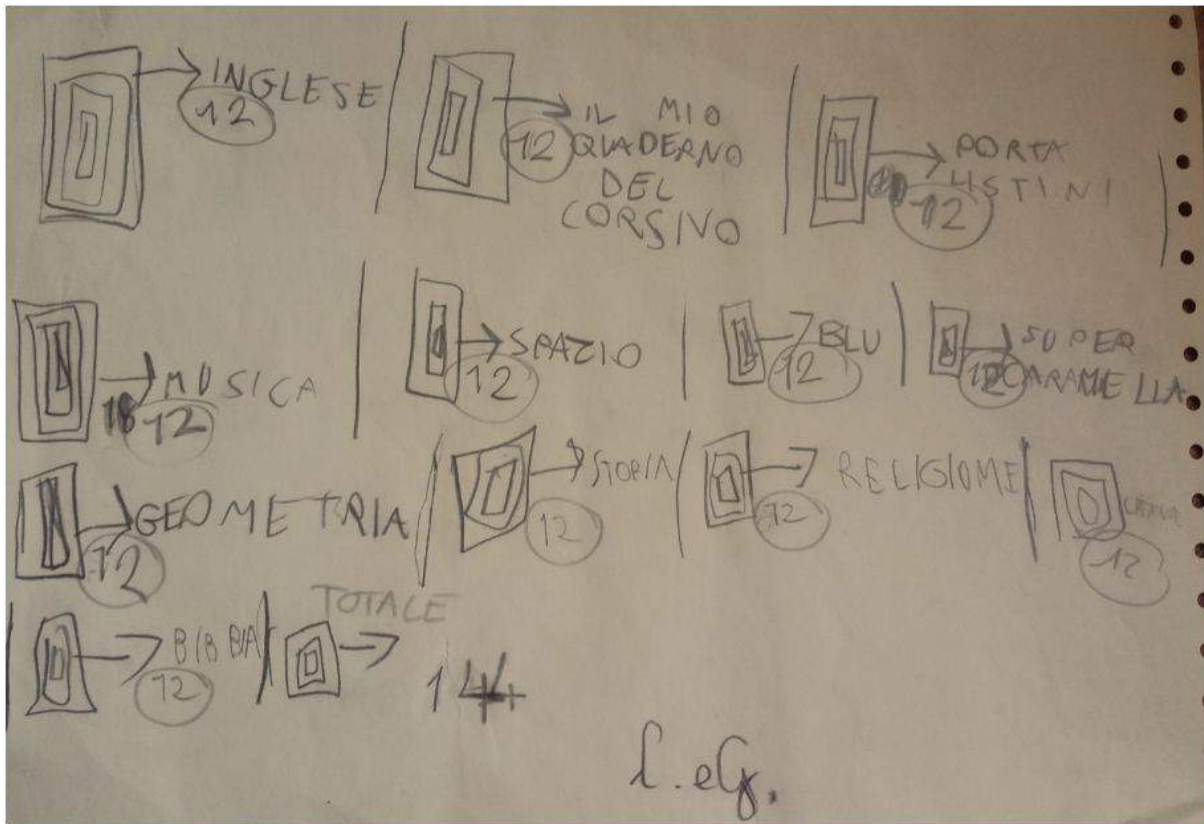 INGLESE
12
IL MIO
12 QUADERNO
DEL
CORSIVO
PORTA
LISTINI
12
MUSICA
12
SPAZIO
12
BLU
12
SUPER
12 CARAMELLA
GEOMETRIA
12
STORIA
12
RELIGIOME
12
12
BIBBIA
12
TOTALE
144